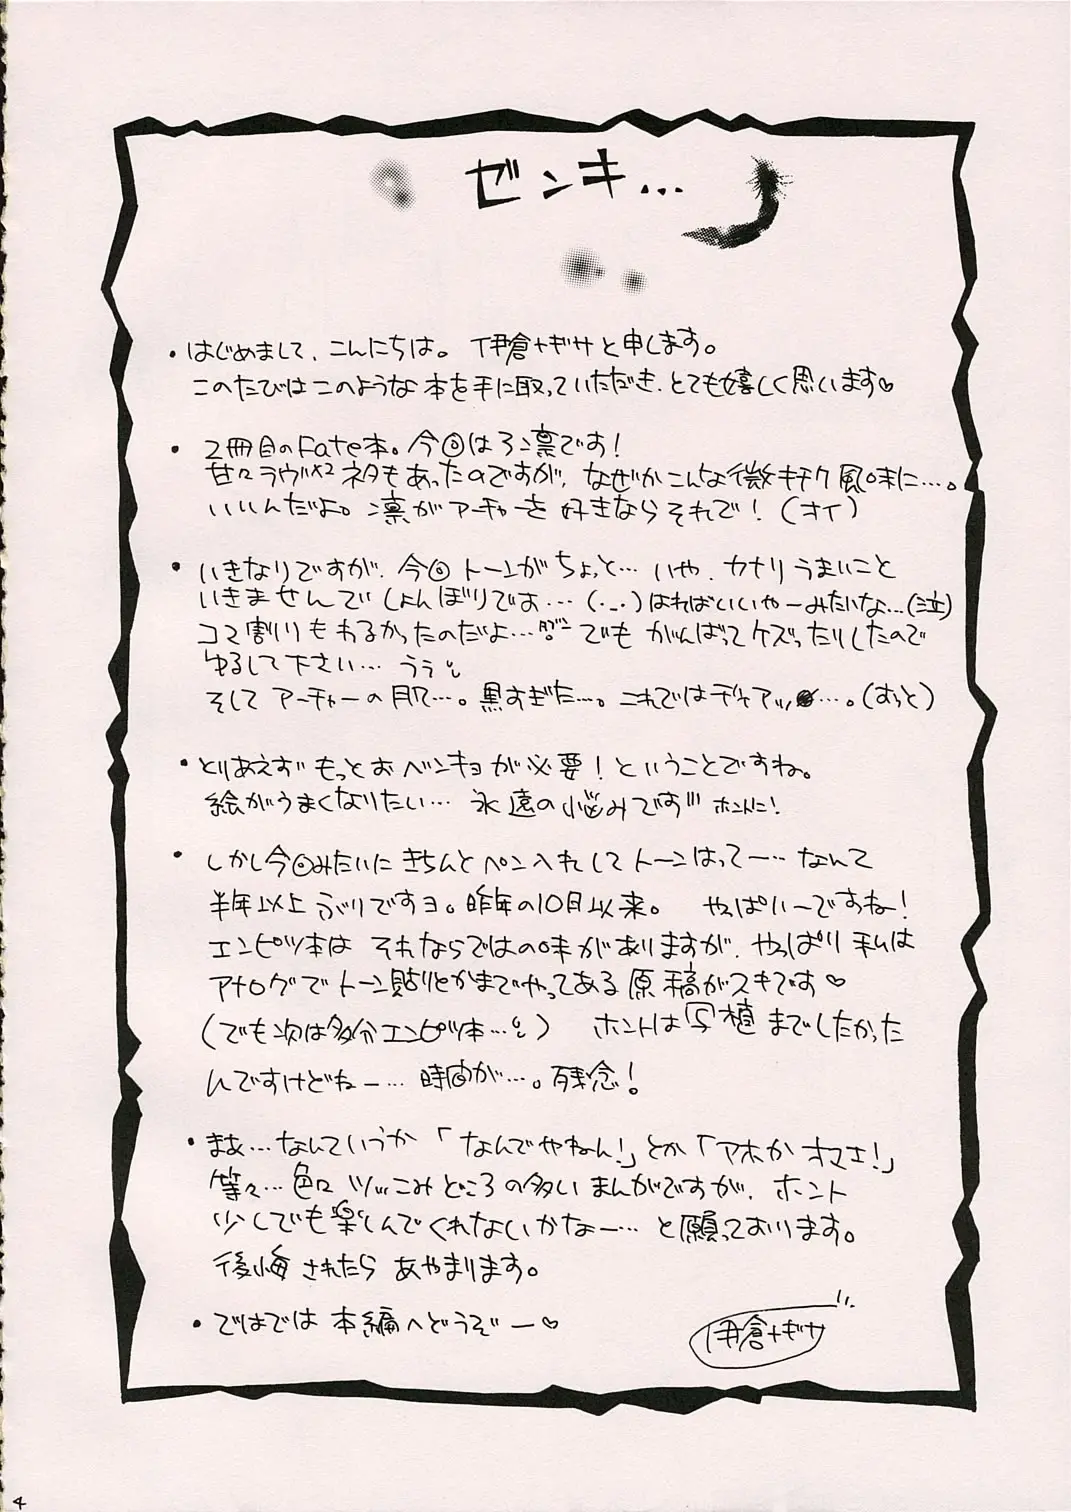 ゼンキ…
・はじめまして、こんにちは。伊倉ナギサと申します。
このたびはこのような本を手に取っていただき、とても嬉しく思います♡
・2冊目のFate本。今回は弓凛です!
甘々ラヴ×2ネタもあったのですが、なぜかこんな微キチク風味に…。
いいんだよ。凛がアーチャーを好きならそれで!(オイ)
・いきなりですが、今回トーンがちょっと…いや、カナリうまいこと
いきませんでしょんぼりです…(._.)はればいいやーみたいな…(泣)
コマ割りもわるかったのだよ… でもがんばってケズったりしたので
ゆるして下さい…うぅ
そしてアーチャーの肌…。黒すぎた…。これではディアッ…。(おっと)
・とりあえずもっとおベンキョが必要!ということですね。
絵がうまくなりたい…永遠の悩みです ホントに!
・しかし今回みたいにきちんとペン入れしてトーンはってー…なんて
半年以上ぶりですヨ。昨年の10月以来。やっぱいーですね!
エンピツ本はそれならではの味がありますが、やっぱり私は
アナログでトーン貼りとかまでやってある原稿がスキです♡
(でも次は多分エンピツ本…) ホントは写植までしたかった
んですけどねー…時間が…。残念!
・まぁ…なんていうか「なんでやねん!」とか「アホかオマエ!」
等々…色々ツッこみどころの多いまんがですが、ホント
少しでも楽しんでくれないかなー…と願っております。
後悔されたらあやまります。
・ではでは本編へどうぞー♡
伊倉ナギサ
4